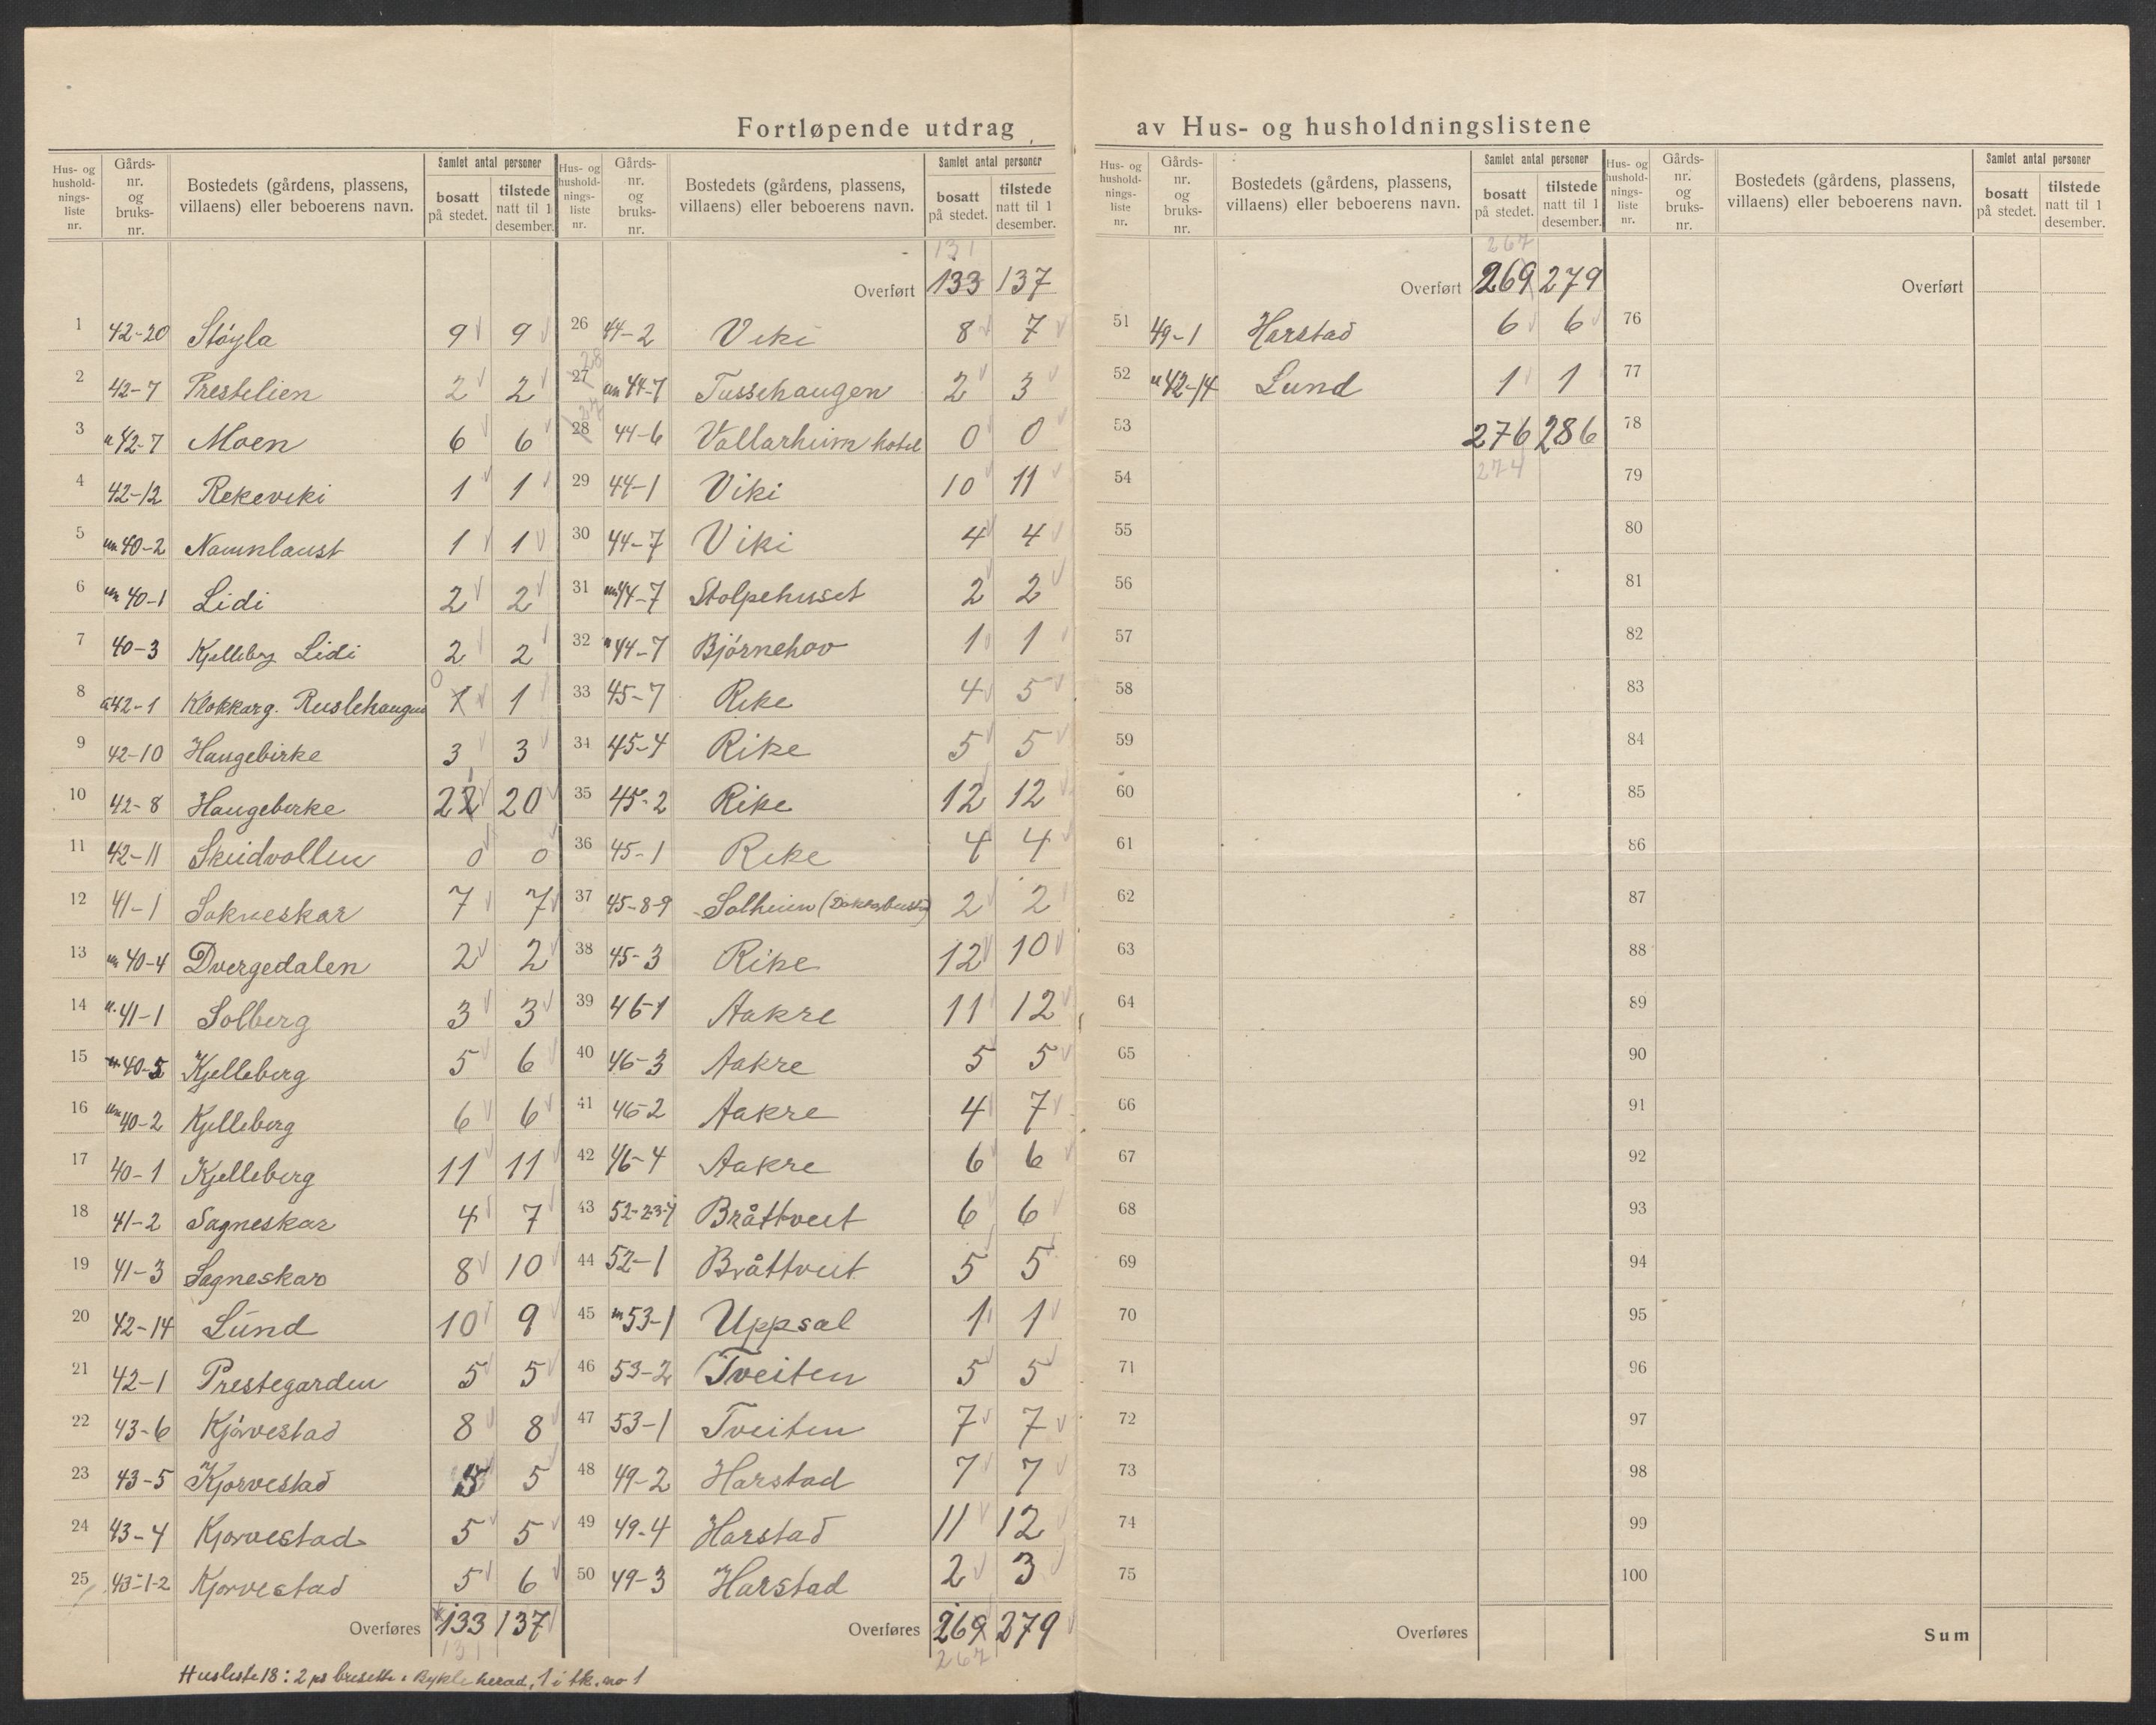 Fortløpende utdrag av Hus- og husholdningslistene
Hus- og hushold-nings-liste nr. Gårds-nr. og bruks-nr. Bostedets (gårdens, plassens, villaens) eller beboerens navn. Samlet antal personer bosatt på stedet. tilstede natt til 1 desember.
1 42-20 Støyla 9 9
2 42-7 Prestelien 2 2
3 u 42-7 Moen 6 6
4 42-12 Rekeviki 1 1
5 un 40-2 Namnlaust 1 1
6 un 40-1 Lidi 2 2
7 40-3 Kjelleberg Lidi 2 2
8 42-1 Klokkarg. Ruslehaugen 0 1 1
9 42-10 Haugebirke 3 3
10 42-8 Haugebirke 22 20
11 42-11 Skeidvollen 0 0
12 41-1 Sakneskar 7 7
13 un 40-4 Dvergedalen 2 2
14 u. 41-1 Solberg 3 3
15 un 40-5 Kjelleberg 5 6
16 un 40-2 Kjelleberg 6 6
17 40-1 Kjelleberg 11 11
18 41-2 Sagneskar 4 7
19 41-3 Sagneskar 8 10
20 42-14 Lund 10 9
21 42-1 Prestegarden 5 5
22 43-6 Kjørvestad 8 8
23 43-5 Kjørvestad 5 5
24 43-4 Kjorvestad 5 5
25 43-1-2 Kjorvestad 5 6
Overføres 133 137
131
Husliste 18: 2 ps busette i Bykle herad, 1 i tk. no 1
Hus- og hushold-nings-liste nr. Gårds-nr. og bruks-nr. Bostedets (gårdens, plassens, villaens) eller beboerens navn. Samlet antal personer bosatt på stedet. tilstede natt til 1 desember.
131
Overført 133 137
26 44-2 Viki 8 7
28
27 un 44-7 Tussehaugen 2 3
27
28 44-6 Vallarheim hotel 0 0
29 44-1 Viki 10 11
30 44-7 Viki 4 4
31 un 44-7 Stolpehuset 2 2
32 u 44-7 Bjørnehov 1 1
33 45-7 Rike 4 5
34 45-4 Rike 5 5
35 45-2 Rike 12 12
36 45-1 Rike 4 4
37 45-8-9 Solheim 2 2
38 45-3 Rike 12 10
39 46-1 Aakre 11 12
40 46-3 Aakre 5 5
41 46-2 Aakre 4 7
42 46-4 Aakre 6 6
43 52-2-3-4 Bråttveit 6 6
44 52-1 Bråttveit 5 5
45 un 53-1 Uppsal 1 1
46 53-2 Tveiten 5 5
47 53-1 Tveiten 7 7
48 49-2 Harstad 7 7
49 49-4 Harstad 11 12
50 49-3 Harstad 2 3
Overføres 269 279
267
Hus- og hushold-nings-liste nr. Gårds-nr. og bruks-nr. Bostedets (gårdens, plassens, villaens) eller beboerens navn. Samlet antal personer bosatt på stedet. tilstede natt til 1 desember.
267
Overført 269 279
51 49-1 Harstad 6 6
52 u 42-14 Lund 1 1
53 276 286
54 274
55
56
57
58
59
60
61
62
63
64
65
66
67
68
69
70
71
72
73
74
75
Overføres
Hus- og hushold-nings-liste nr. Gårds-nr. og bruks-nr. Bostedets (gårdens, plassens, villaens) eller beboerens navn. Samlet antal personer bosatt på stedet. tilstede natt til 1 desember.
Overført
76
77
78
79
80
81
82
83
84
85
86
87
88
89
90
91
92
93
94
95
96
97
98
99
100
Sum